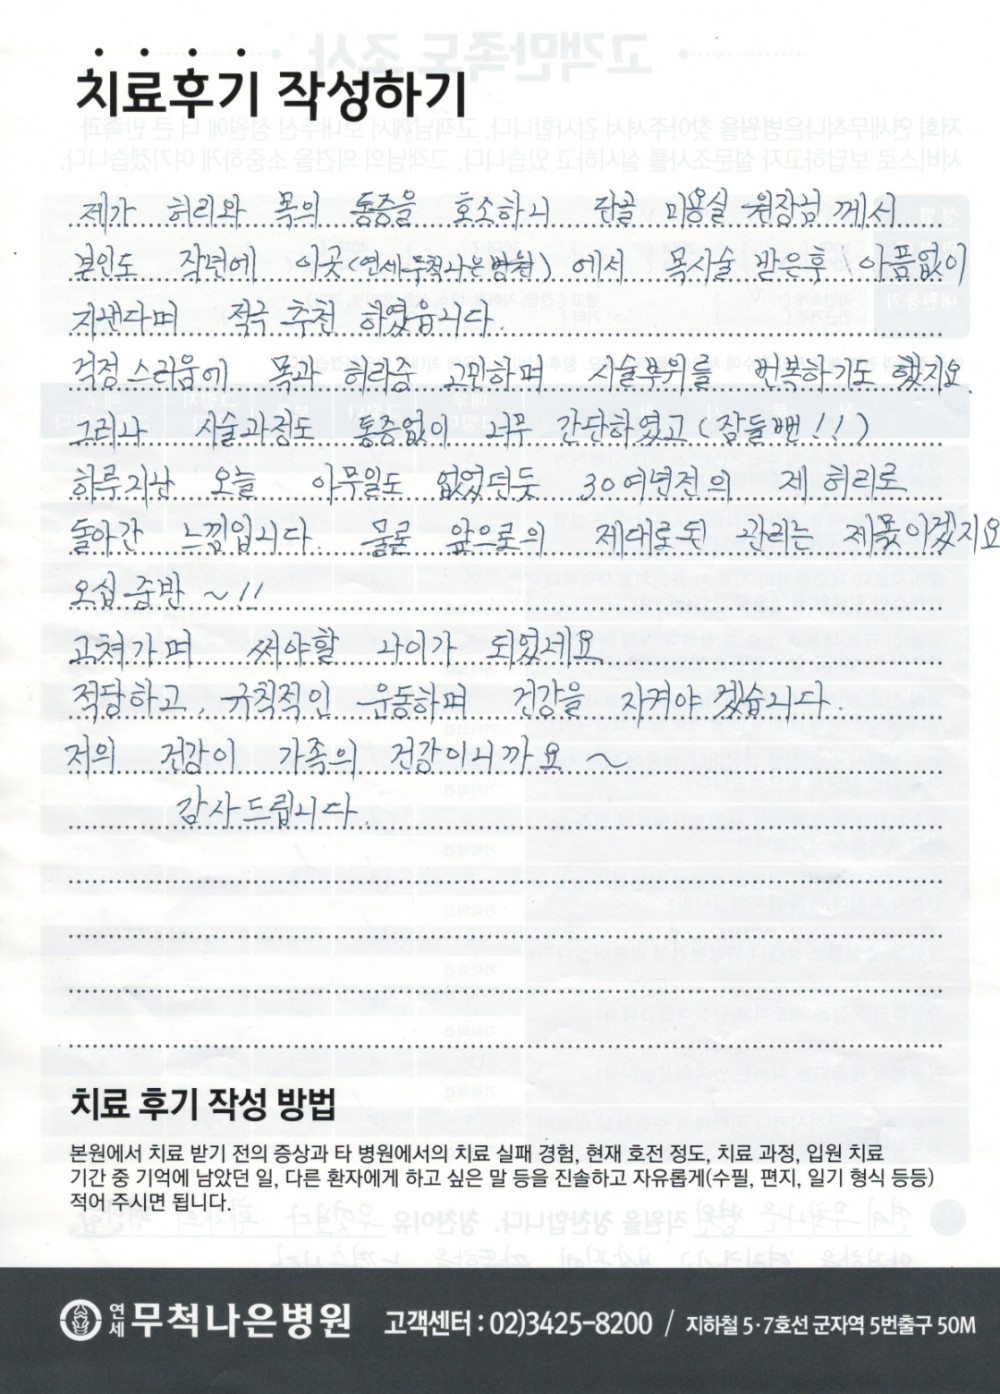 치료후기 작성하기
제가 허리와 목의 통증을 호소하니 단골 미용실 원장님 께서
본인도 작년에 이곳(연세무척나은병원) 에서 목시술 받은후 아픔없이
지낸다며 적극 추천 하였습니다.
걱정스러움에 목과 허리중 고민하며 시술부위를 번복하기도 했지요
그러나 시술과정도 통증없이 너무 간단하였고 (잠들뻔!!)
하루지난 오늘 아무일도 없었던듯 30여년전의 제 허리로
돌아간 느낌입니다. 물론 앞으로의 제대로된 관리는 제몫이겠지요
오십 중반 ~!!
고쳐가며 써야할 나이가 되었네요
적당하고, 규칙적인 운동하며 건강을 지켜야 겠습니다
저의 건강이 가족의 건강이니까요 ~
감사드립니다.
치료 후기 작성 방법
본원에서 치료 받기 전의 증상과 타 병원에서의 치료 실패 경험, 현재 호전 정도, 치료 과정, 입원 치료
기간 중 기억에 남았던 일, 다른 환자에게 하고 싶은 말 등을 진솔하고 자유롭게(수필, 편지, 일기 형식 등등)
적어 주시면 됩니다.
연세 무척나은병원 고객센터 : 02)3425-8200 / 지하철 5·7호선 군자역 5번출구 50M